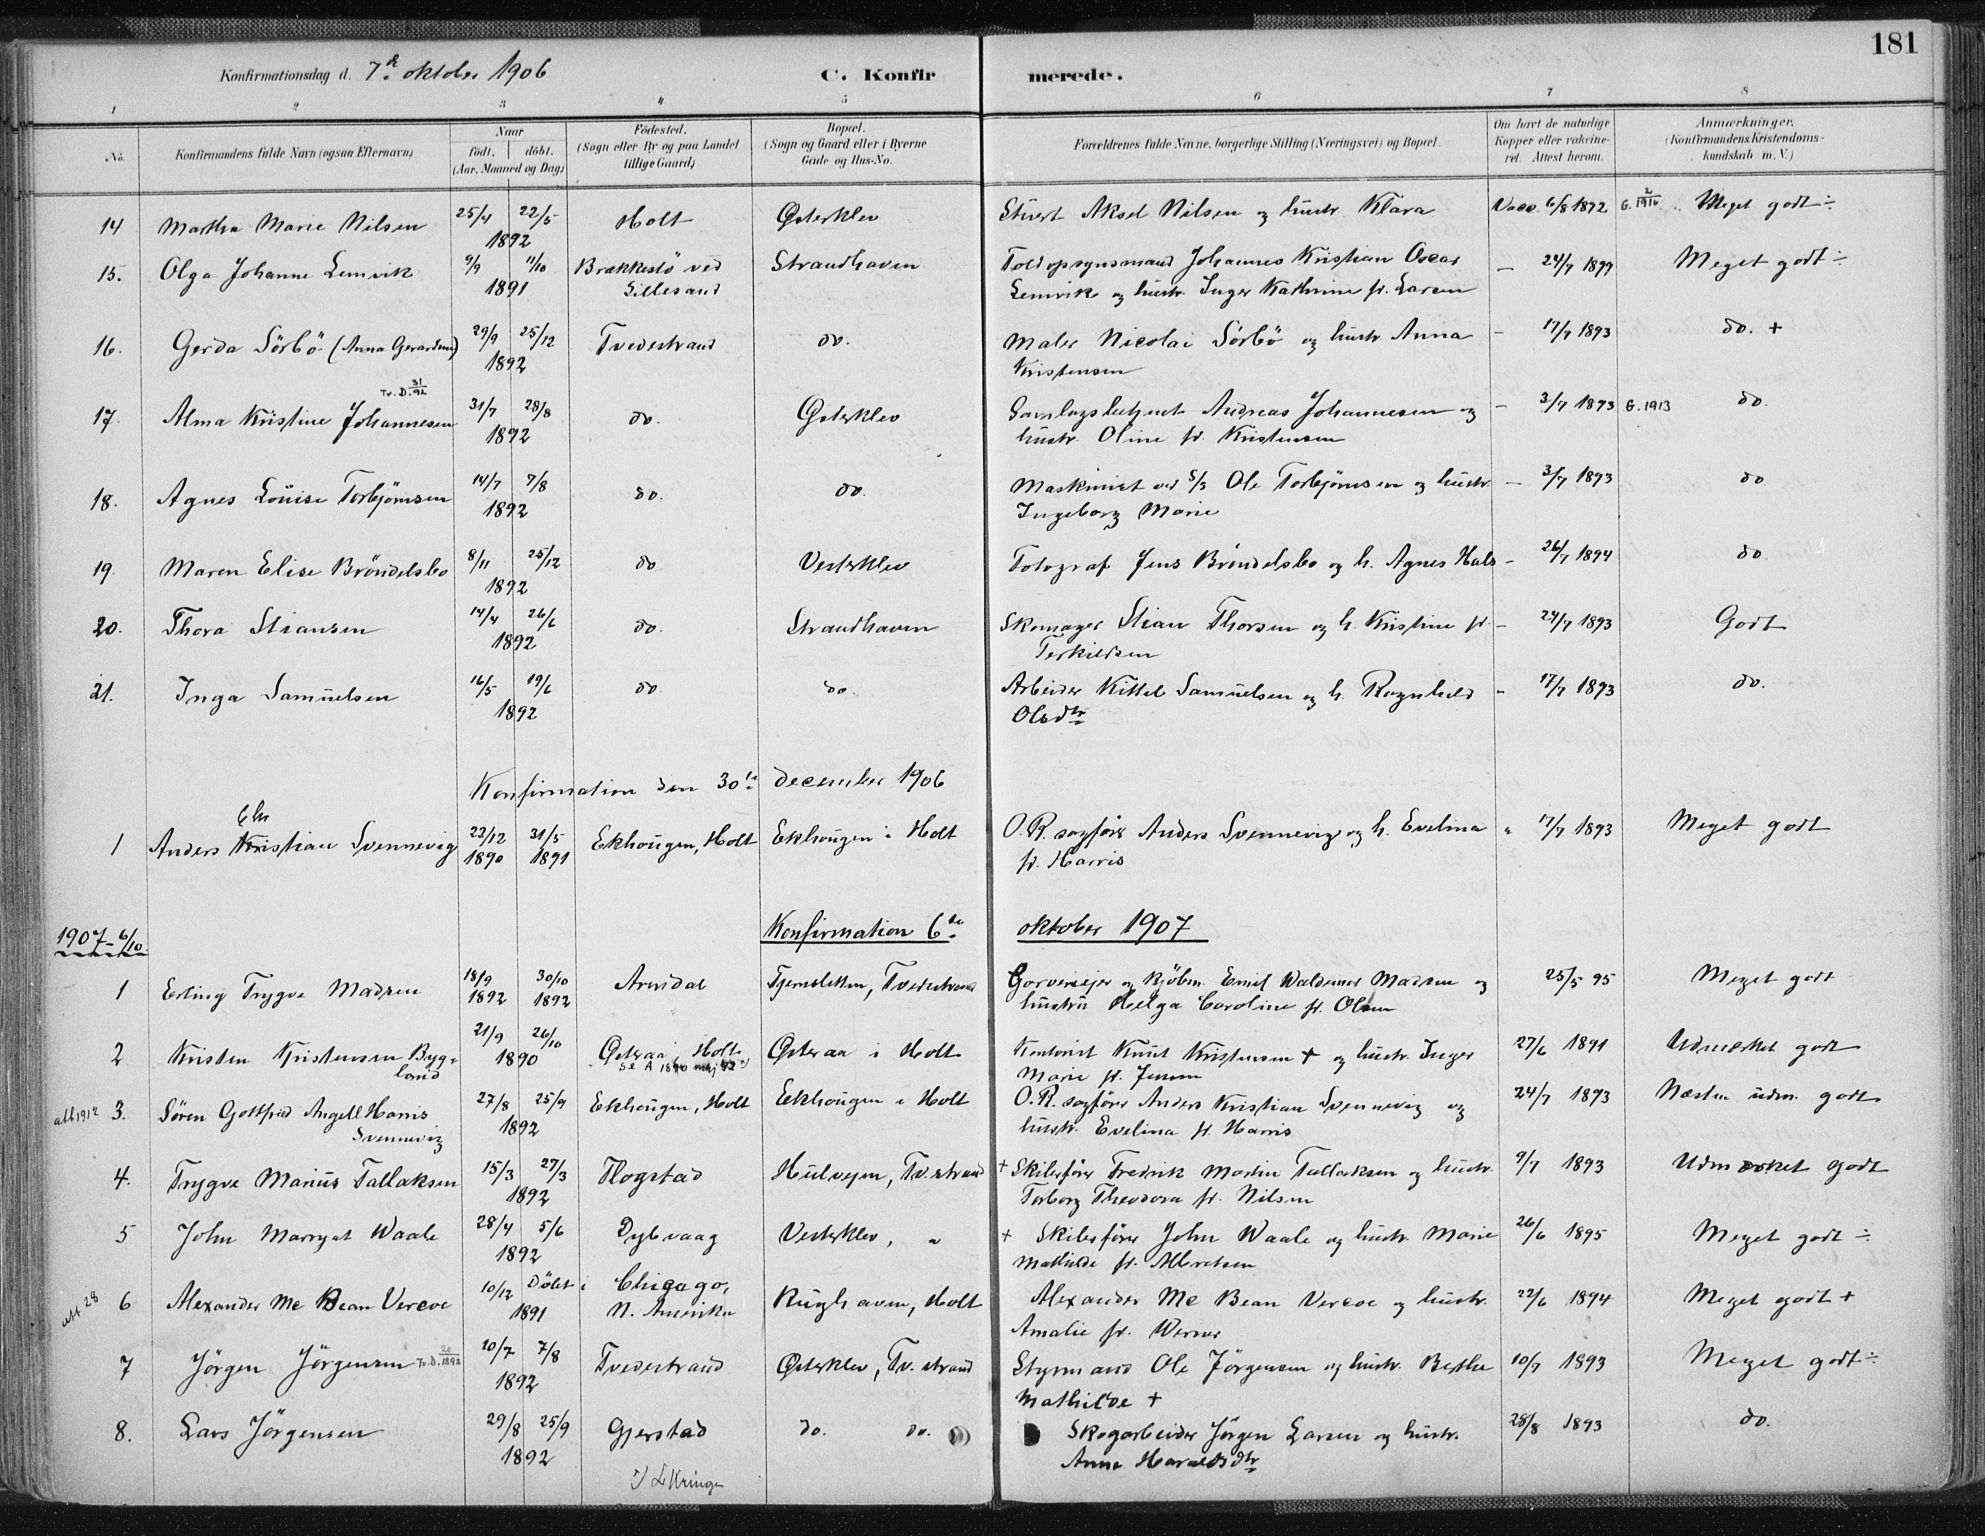 181
Konfirmationsdag d. 7de oktober 1906 C. Konfirmerede.
1 2 3 4 5 6 7 8
No. Konfirmandens fulde Navn (ogsaa Efternavn) Naar födt. döbt. (Aar, Maaned og Dag) Födested. (Sogn eller By og paa Landet tillige Gaard) Bopæl. (Sogn og Gaard eller i Byerne Gade og Hus-No. Forældrenes fulde Navne, borgerlige Stilling (Næringsvei) og Bopæl. Om havt de naturlige Kopper eller vakcineret. Attest herom. Anmærkninger. (Konfirmandens Kristendomskundskab m. V.)
14 Martha Marie Nilsen 25/4 22/5 1892 Holt Østerklev Stuert Aksel Nilsen og hustr. Klara Vacc. 6/8 1872 G. 2/1916 Meget godt ÷
15. Olga Johanne Lemvik 9/9 11/10 1891 Brækkestö ved Lillesand Strandhaven Toldopsynsmand Johannes Kristian Oscar
Lemvik og hustr. Inger Kathrine f. Larsen — 24/7 1899 Meget godt ÷
16. Gerda Sörbö (Anna Gerardine) 29/9 25/12 1892 Tvedestrand do. Maler Nicolai Sörbö og hustr. Anna
Kristensen - 17/7 1893 do. +
Tv. D. 31/92
17. Alma Kristine Johannesen 31/7 28/8 1892 do. Østerklev Samlagsbetjent Andreas Johannesen og
hustr. Oline f. Kristensen - 3/7 1893 G. 1913 do.
18. Agnes Louise Torbjörnsen 14/7 7/8 1892 do. do. Maskinist ved S/S Ole Torbjörnsen og hustr.
Ingeborg Marie — 3/7 1893 do
19. Maren Elise Bröndelsbo 8/11 25/12 1892 do. Vesterklev Fotograf Jens Bröndelsbo og h. Agnes Hals - 26/7 1894 do
20. Thora Stiansen 14/4 26/6 1892 do. Strandhaven Skomager Stian Thorsen og h. Kristine f.
Terkildsen - 24/7 1893 Godt
21. Inga Samuelsen 16/5 19/6 1892 do do. Arbeider Kittel Samuelsen og h. Ragnhild
Olsdtr - 17/7 1893 do.
Konfirmation den 30te december 1906
Chr
1 Anders Kristian Svennevig 22/12 1890 31/5 1891 Ekhougen, Holt Ekhougen i Holt O.R. sagförer Anders Svennevig og h. Evelina
f. Harris " 17/7 1893 Meget godt
1907 - 6/10. Konfirmation 6te oktober 1907
1 Erling Trygve Madsen 18/9 1892 30/10 1892 Arendal Tjernsletten, Tvedestrand Garveriejer og kjöbm. Emil Waldemar Madsen og
hustru Helga Caroline f. Olsen 25/5 95 Meget godt
2 Kristen Kristensen Bygland 21/9 26/10 1890 Østeraa i Holt Østeraa i Holt Kontorist Knut Kristensen + og hustr. Inger
Marie f. Jensen 27/6 1891 Udmærket godt
att 1912 3. Sören Gottfred Angell Harris Svennevig 27/8 25/9 1892 Ekhougen, Holt Ekhougen i Holt O.R. sagförer Anders Kristian Svennevig og
hustr. Evelina f. Harris 24/7 1893 Næsten udm. godt
4. Trygve Marius Tallaksen 15/3 27/3 1892 Flogstad Hulvejen, Tv. strand + Skibsförer Fredrik Martin Tallaksen og hustr.
Torborg Theodora f. Nilsen 9/7 1893 Udmærket godt
5 John Marryat Waale 28/4 5/6 1892 Dybvaag Vesterklev, " + Skibsförer John Waale og hustr. Marie
Mathilde f. Albretsen 26/6 1895 Meget godt ÷
att 28 6 Alexander Mc Bean Vercoe 10/12 1891 Döbt i Chicago, N. Amerika Rughaven, Holt Alexander Mc Bean Vercoe og hustr.
Amalie f. Werner 22/6 1894 Meget godt +
7 Jörgen Jörgensen Tv.D. 20/1892 20/7 7/8 1892 Tvedestrand Østerklev, Tv. strand Styrmand Ole Jörgensen og hustr. Bertha
Mathilde + 10/7 1893 Meget godt ÷
8. Lars Jörgensen 29/8 25/9 1892 Gjerstad do. do. Skogarbeider Jörgen Larsen og hustr.
Anne Haraldsdtr 28/8 1893 do.